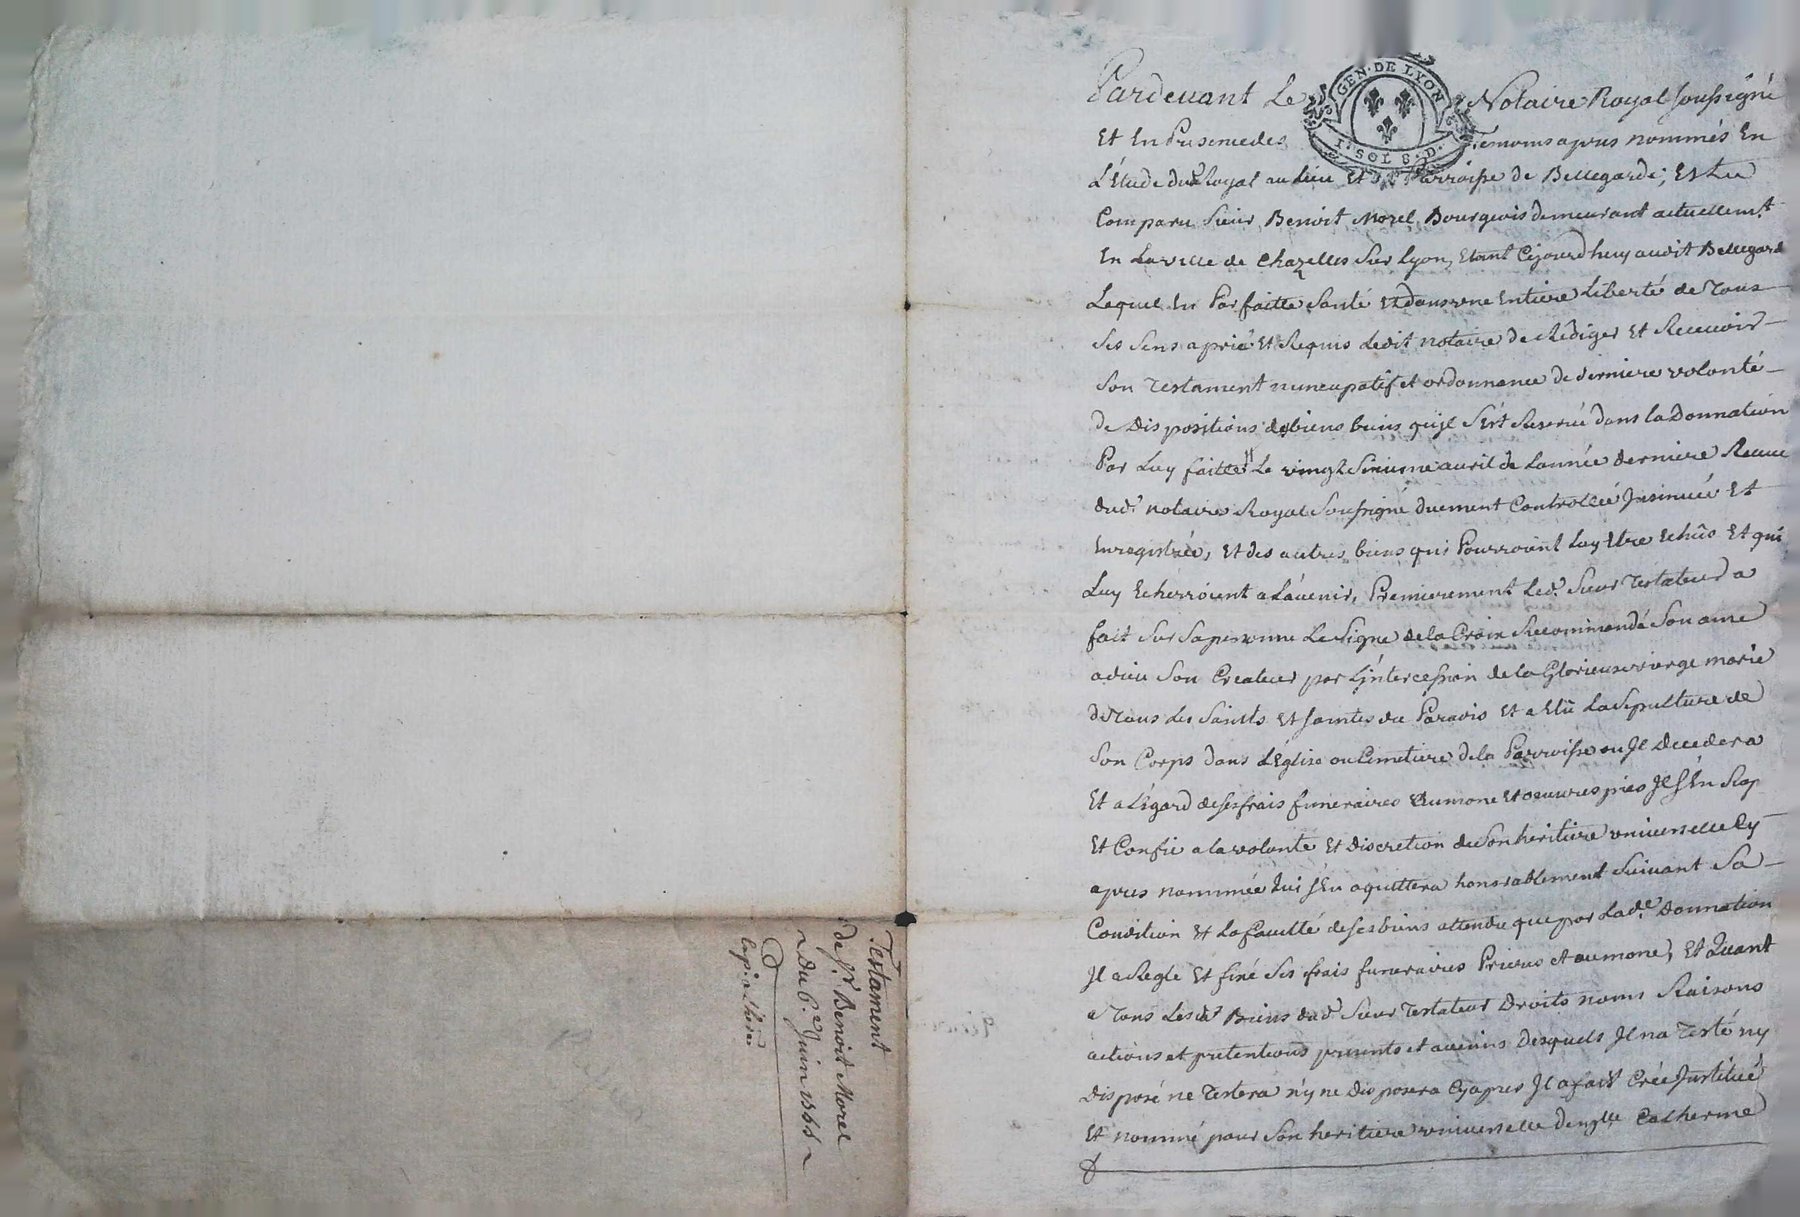 Testament
de Sr. Benoit Morel
Du 6e. Juin
GEN. DE LYON
1. SOL 8. D.
Pardevant Le Notaire Royal soussigné
Et En Presence des Témoins apres nommés En
L'Etude dud. Royal au Lieu Et Parroisse de Bellegarde; Est
Comparu Sieur Benoit Morel Bourgeois demeurant actuellemt.
En La ville de Chazelles Sur Lyon, Etant Cejourdhuy audit Bellegarde
Lequel En Parfaitte Santé Et dans une Entiere Liberté de Tous
Ses Sens a prié Et Requis Ledit notaire de Rédiger Et Recevoir
Son Testament nuncupatif et ordonnance de derniere volonté
de Dispositions des biens qu'il S'est Reservé dans la Donnation
Par Luy faitte Le vingt Sixiesme avril de Lannée derniere Receue
dud. notaire Royal Soussigné duement Controllée Insinuée Et
Enregistrée, Et des autres biens qui Pourroient Luy Etre Echûs Et qui
Luy Echerroient a L'avenir, Premierement Led. Sieur Testateur a
fait Sur Sa personne Le Signe de la Croix Recommandé Son ame
a dieu Son Createur par L'intercession de la Glorieuse vierge marie
de Tous Les Saints Et Saintes du Paradis Et a Elû La Sepulture de
Son Corps dans L'Eglise ou Cimetiere de la Parroisse ou Il Decedera
Et a L'égard de ses frais funeraires Aumone Et oeuvres pies Il S'En Rap
Et Confie a la volonté Et discretion de Son heritiere universelle Cy
apres nommée qui S'En aquittera honorablement Suivant Sa
Condition Et La faculté de Ses biens attendu que par Lade. Donnation
Il a Reglé Et fixé Ses frais funeraires Prieres et aumone, Et Quant
a Tous Les Biens dud. Sieur Testateur Droits noms Raisons
actions et pretentions presents et avenirs Desquels Il na Testé ny
disposé ne Testera n'y ne Disposera Cyapres Il a fait Créé Institué
Et nommé pour Son heritiere universelle Catherine